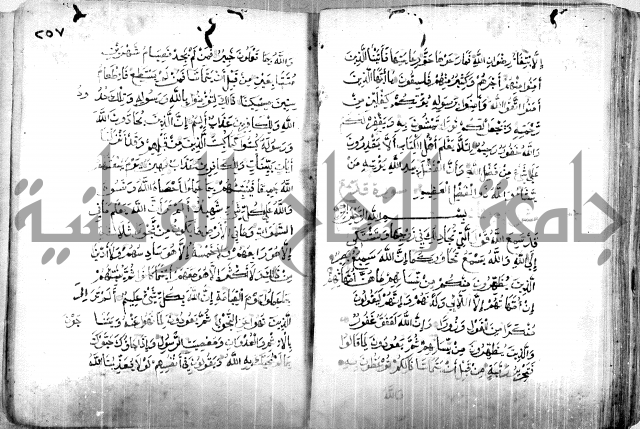 إلا ابتغاء رضوان الله فما رعوها حق رعايتها فآتينا الذين
آمنوا منهم أجرهم وكثير منهم فاسقون يا أيها الذين
آمنوا اتقوا الله وآمنوا برسوله يؤتكم كفلين من
رحمته ويجعل لكم نورا تمشون به ويغفر لكم
والله غفور رحيم لئلا يعلم أهل الكتاب ألا يقدرون
على شيء من فضل الله وأن الفضل بيد الله يؤتيه من
يشاء والله ذو الفضل العظيم سورة
بسم الله الرحمن الرحيم
قد سمع الله قول التي تجادلك في زوجها وتشتكي
إلى الله والله يسمع تحاوركما إن الله سميع بصير
الذين يظهرون منكم من نسائهم ما هن أمهاتهم
إن أمهاتهم إلا اللائي ولدنهم وإنهم ليقولون
منكرا من القول وزورا وإن الله لعفو غفور
والذين يظهرون من نسائهم ثم يعودون لما قالوا
فتحرير رقبة من قبل أن يتماسا ذلكم توعظون به
والله
٢٥٧
والله بما تعملون خبير فمن لم يجد فصيام شهرين
متتابعين من قبل أن يتماسا فمن لم يستطع فإطعام
ستين مسكينا ذلك لتؤمنوا بالله ورسوله وتلك حدود
الله وللكافرين عذاب أليم إن الذين يحادون الله
ورسوله كبتوا كما كبت الذين من قبلهم وقد أنزلنا
آيات بينات وللكافرين عذاب مهين يوم يبعثهم
الله جميعا فينبئهم بما عملوا أحصاه الله ونسوه
والله على كل شيء شهيد ألم تر أن الله يعلم ما في
السموات وما في الأرض ما يكون من نجوى ثلاثة
إلا هو رابعهم ولا خمسة إلا هو سادسهم ولا أدنى
من ذلك ولا أكثر إلا هو معهم أينما كانوا ثم ينبئهم
بما عملوا يوم القيامة إن الله بكل شيء عليم ألم تر إلى
الذين نهوا عن النجوى ثم يعودون لما نهوا عنه ويتناجون
بالإثم والعدوان ومعصيت الرسول وإذا جاؤك حيوك
بما لم يحيك به الله ويقولون في أنفسهم لولا يعذبنا الله
جامعة النجاح الوطنية